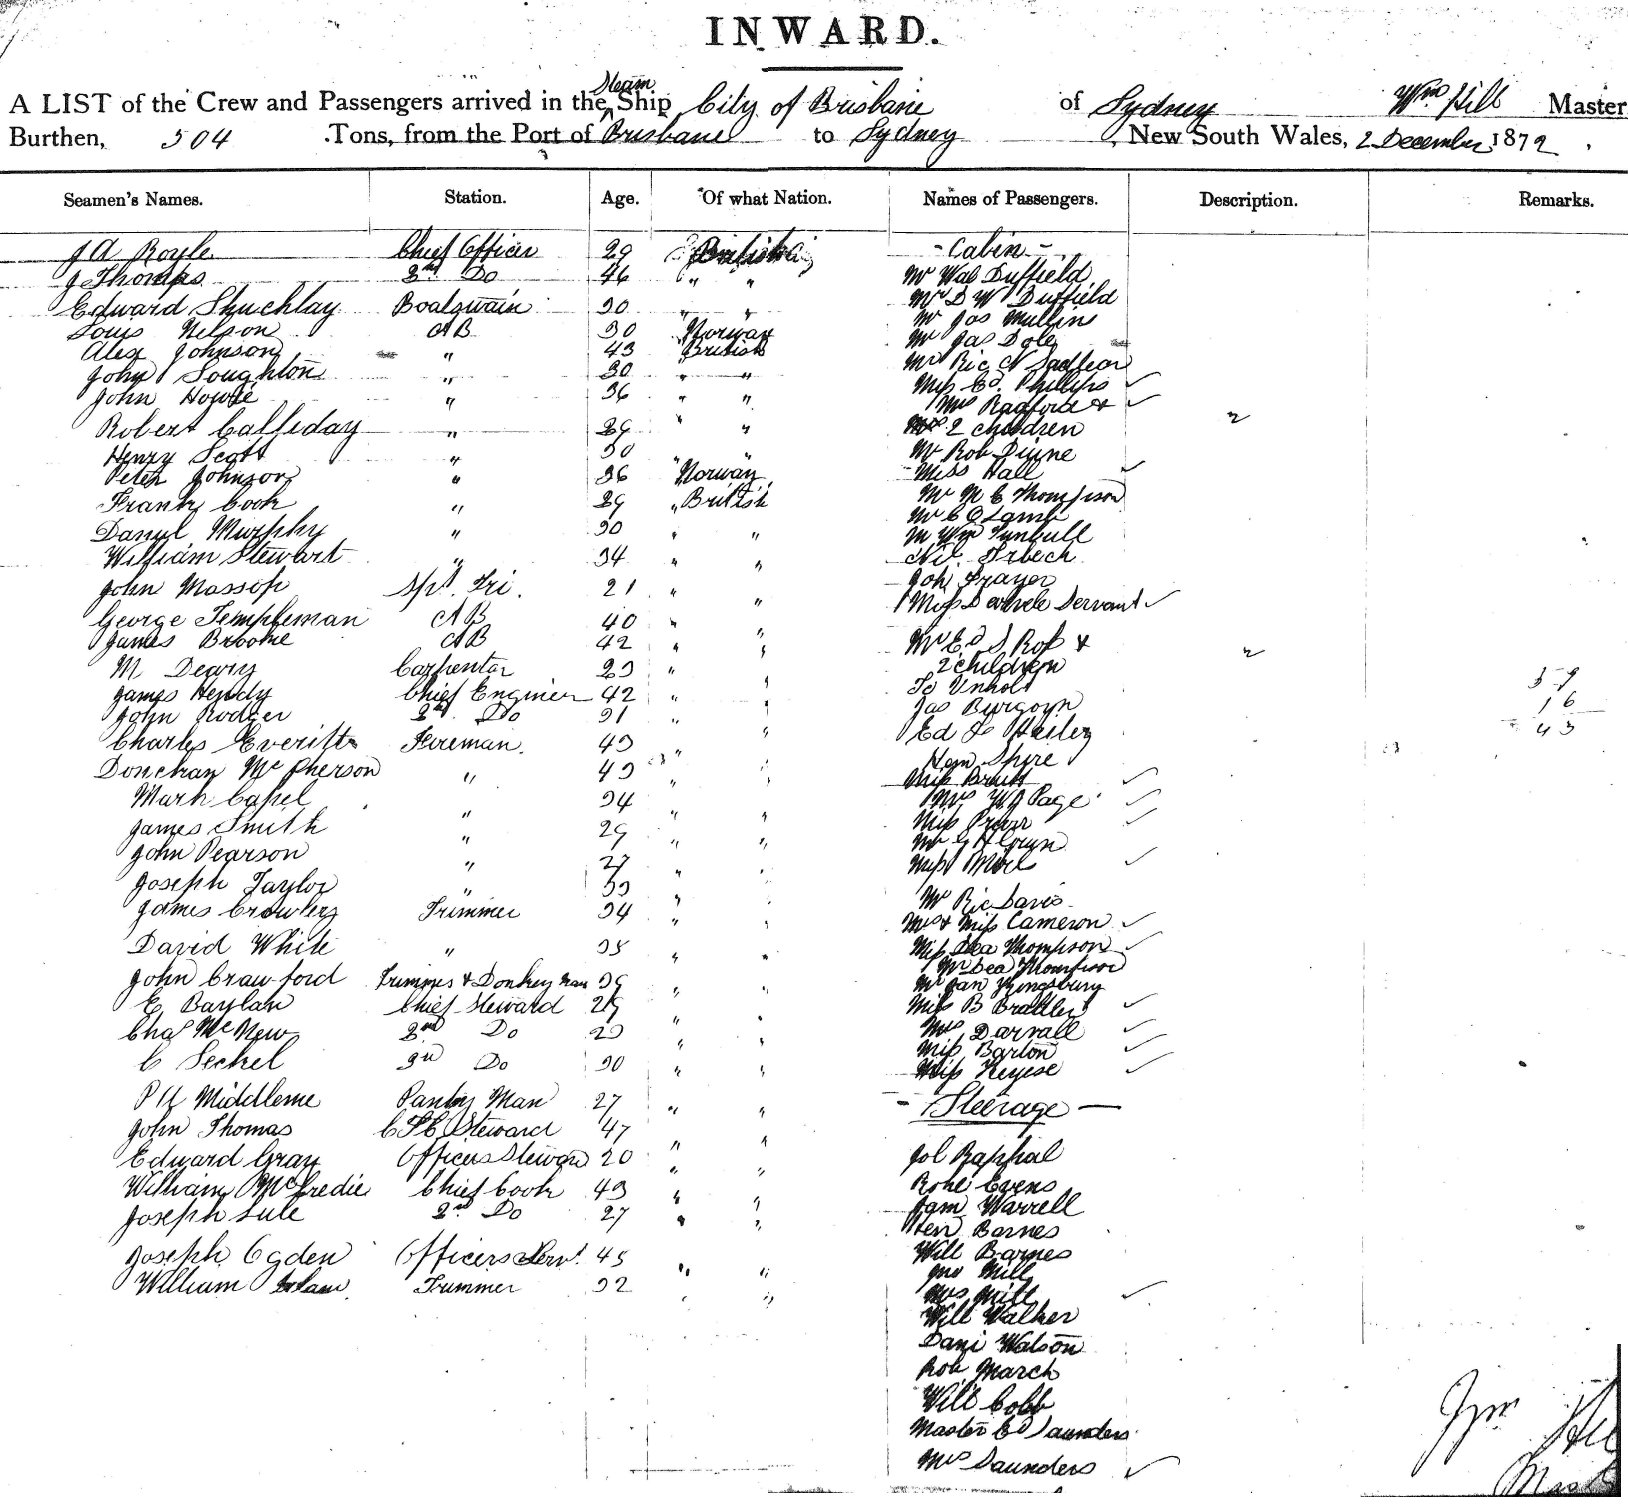 INWARD.
A LIST of the Crew and Passengers arrived in the Steam Ship City of Brisbane of Sydney Wm Hill Master
Burthen, 504 Tons, from the Port of Brisbane to Sydney, New South Wales, 2 December 1872
Seamen's Names. Station. Age. Of what Nation. Names of Passengers. Description. Remarks.
J A Royle Chief Officer 29 British - Cabin -
J Thomps 2nd Do 46 " " Mr Wal Duffield
Edward Boatswain 30 " " Mr D W Duffield
Louis Nelson AB 30 Norway Mr Jas Mullin
Alex Johnson " 43 British Mr Jas Dole
John Loughton " 30 " " Mr Ric
John Howde " 36 " " Miss Ed. Phillips ✓
Mrs Radford & ✓
Robert Calliday " 29 " " 2 children 2
Henry Scott " 30 " " Mr Rob
Peter Johnson " 36 Norway Miss Hall ✓
Frank Cook " 29 British Mr M C Thompson
Daniel Murphy " 30 " " Mr C O Lamb
William Stewart " 34 " " Mr Wm Tunbull
John Mossop 21 " " Joh Frayer
Miss Servant ✓
George Templeman AB 40 " " Mr Ed S Ross &
James Broome AB 42 " " 2 children 2
M Deary Carpenter 23 " "
James Hendy Chief Engineer 42 " " Jas Burgoyn
John Rodger 2nd Do 31 " " Ed
Charles Everitt Fireman. 43 " "
McPherson " 43 " " Miss ✓
Mark Capel " 34 " " Mrs W J Page ✓
James Smith " 29 " " Miss ✓
John Pearson " 27 " " Mr G H
Joseph Taylor " 33 " " Miss ✓
James Crowley Trimmer 34 " " Mr Ric Davis
Mrs & Miss Cameron ✓
David White " 38 " " Miss Dea Thompson ✓
John Crawford Trimmer & Donkey Man 39 " " Mr Dea Thompson
Mr Jan Kingsbury
E Baylan Chief Steward 29 " " Miss B Bradley ✓
Chas McNew 2nd Do 23 " " Mrs Darvall ✓
C Seckel 3rd Do 30 " " Miss Barton ✓
Miss Keyese ✓
P H Middleme Pantry Man 27 " " - Steerage -
John Thomas Steward 47 " "
Edward Gray Officers Steward 20 " " Raphial
William McCredie Chief Cook 43 " " Evens
Joseph Lule 2nd Do 27 " " Jam Warrell
Hen Barnes
Joseph Ogden Officers Servt. 45 " " Will Barnes
William Trimmer 32 " " Jno Mill
Mrs Mill ✓
Will Walker
Dani Watson
Rob March
Will Cobb
Master Ed Saunders
Mrs Saunders ✓
59
16
43
Wm